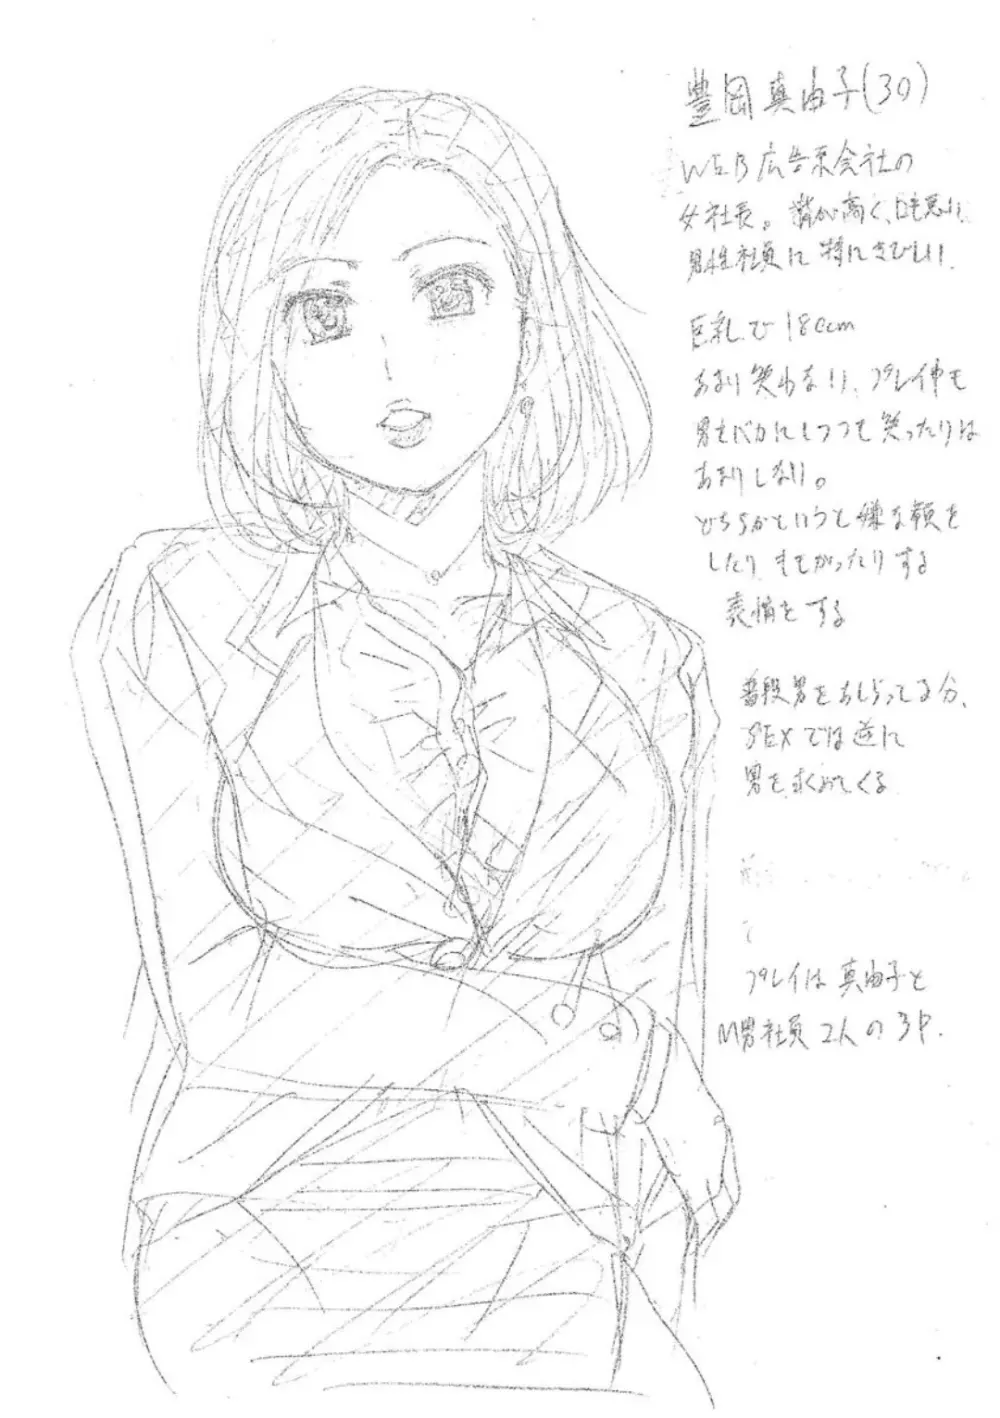 豊岡真由子(30)
WEB広告系会社の
女社長。背が高く、口も悪い。
男性社員に特にきびしい。
巨乳で180cm
あまり笑わない、プレイ中も
男をバカにしつつも笑ったりは
あまりしない。
どちらかというと嫌な顔を
したり、もだえたりする
表情をする
普段男をあしらってる分、
SEXでは逆に
男を求めてくる
プレイは真由子と
M男社員2人の3P.